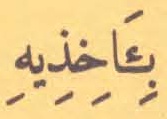 بِئَاخِذِيهِ